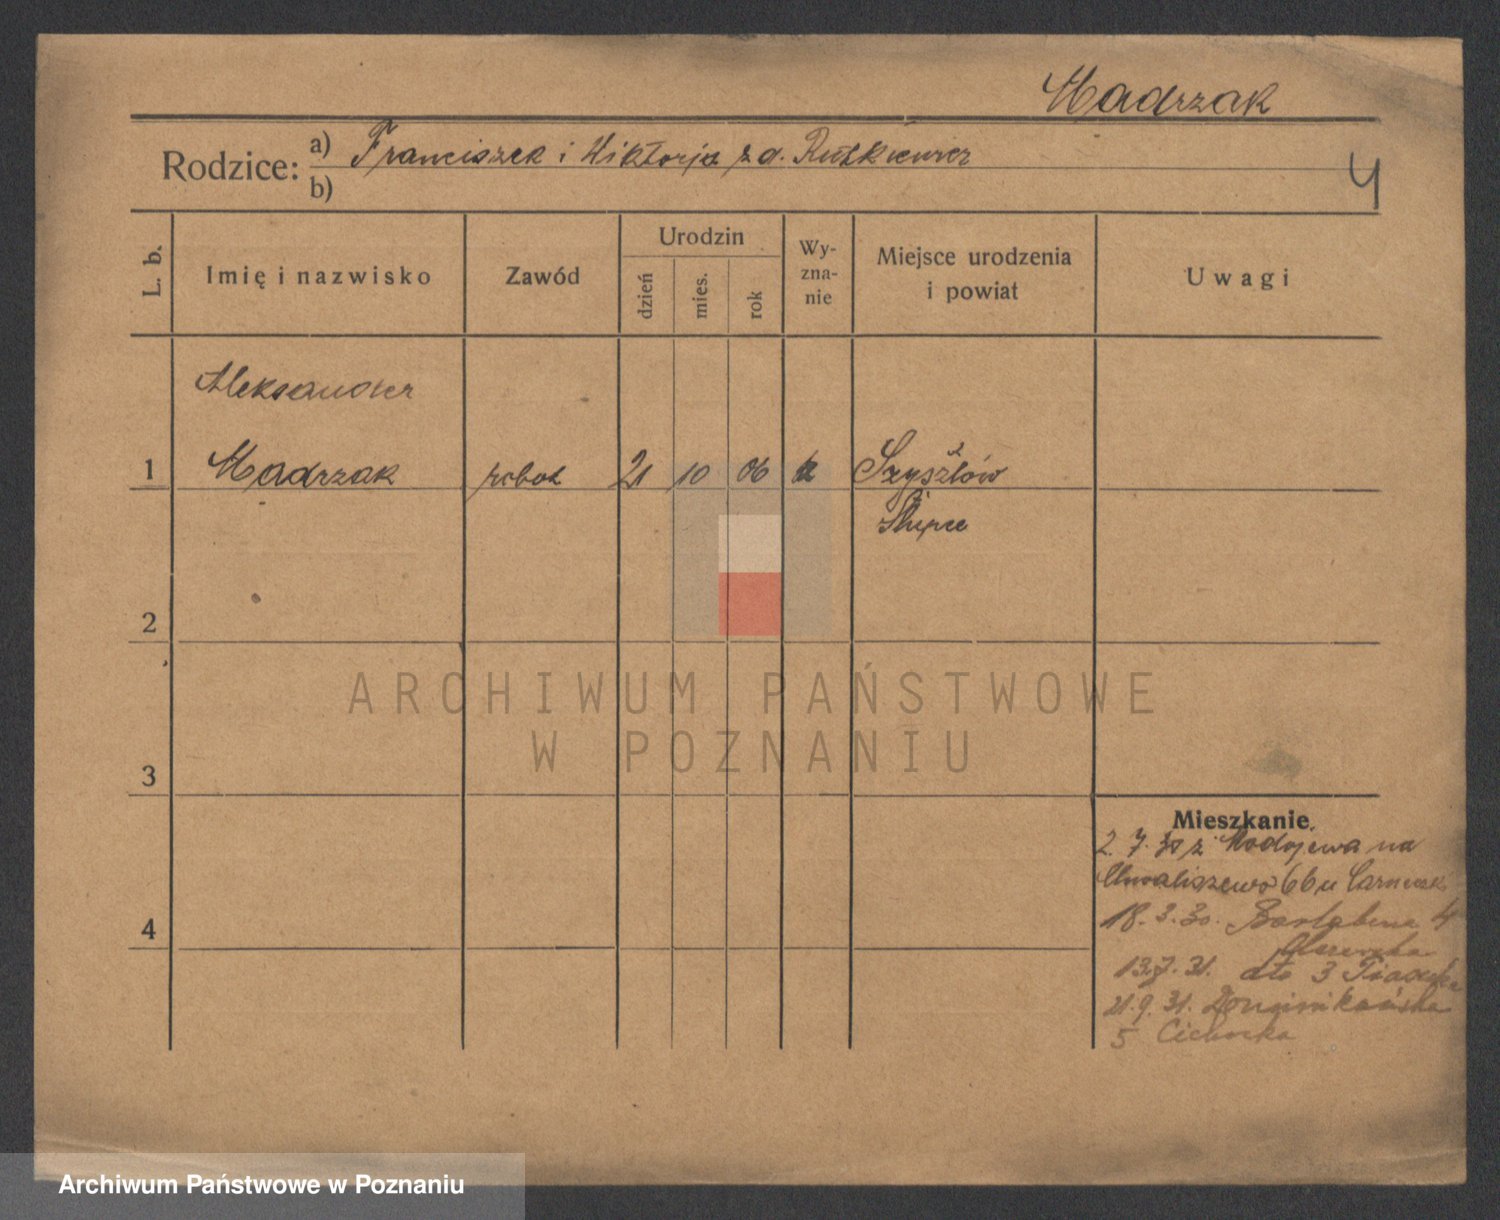 Madrzak
Rodzice: a) Franciszek i Wiktorja z d. Rutkiewicz
b)
4
L. b.
Imię i nazwisko
Zawód
Urodzin
dzień
mies.
rok
Wy-
zna-
nie
Miejsce urodzenia
i powiat
Uwagi
Aleksander
1 Madrzak robot 21 10 06 k Szyszłów
Słupce
2
ARCHIWUM PAŃSTWOWE
W POZNANIU
3
Mieszkanie.
2. 7. 30 z Modojewa na
Chwaliszewo 66 u
18. 3. 30. 4
4
13.7.31. dto 3
21.9.31. Dominikańska
5 Cichocka
Archiwum Państwowe w Poznaniu